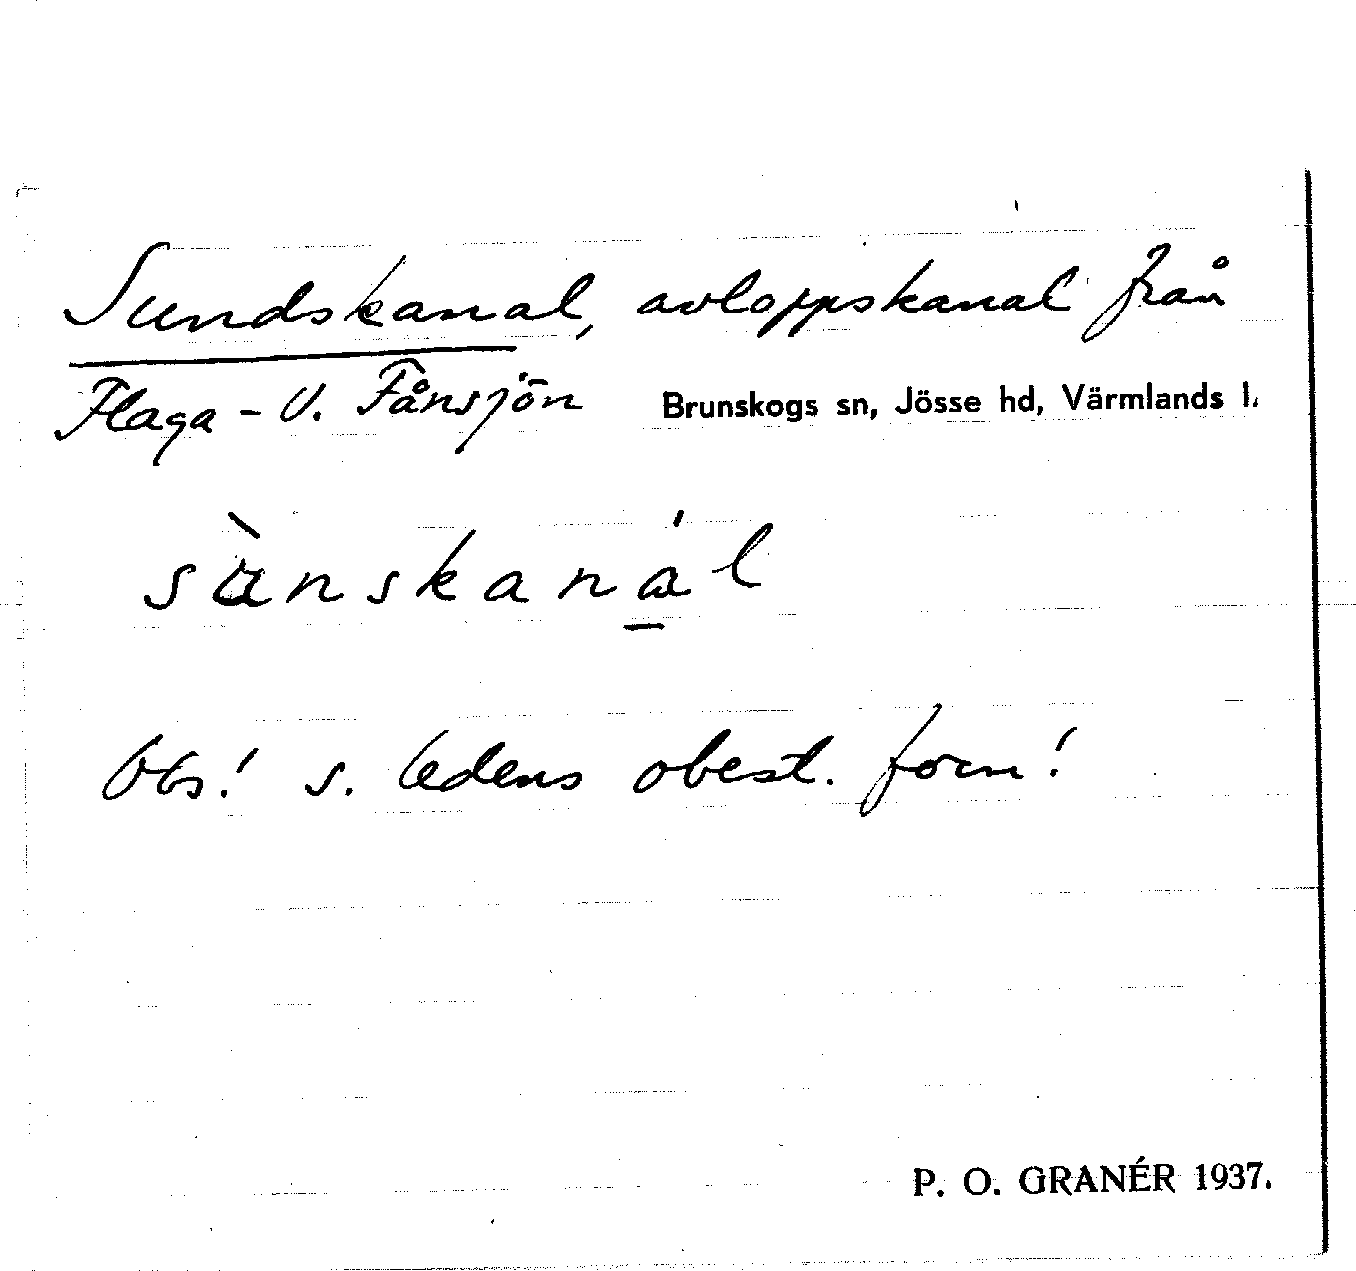 Sundskanal, avloppskanal från
Flaga - V. Fånsjön Brunskogs sn, Jösse hd, Värmlands l.
sànskanál
Obs! s. ledens obest. form!
P. O. GRANÉR 1937.